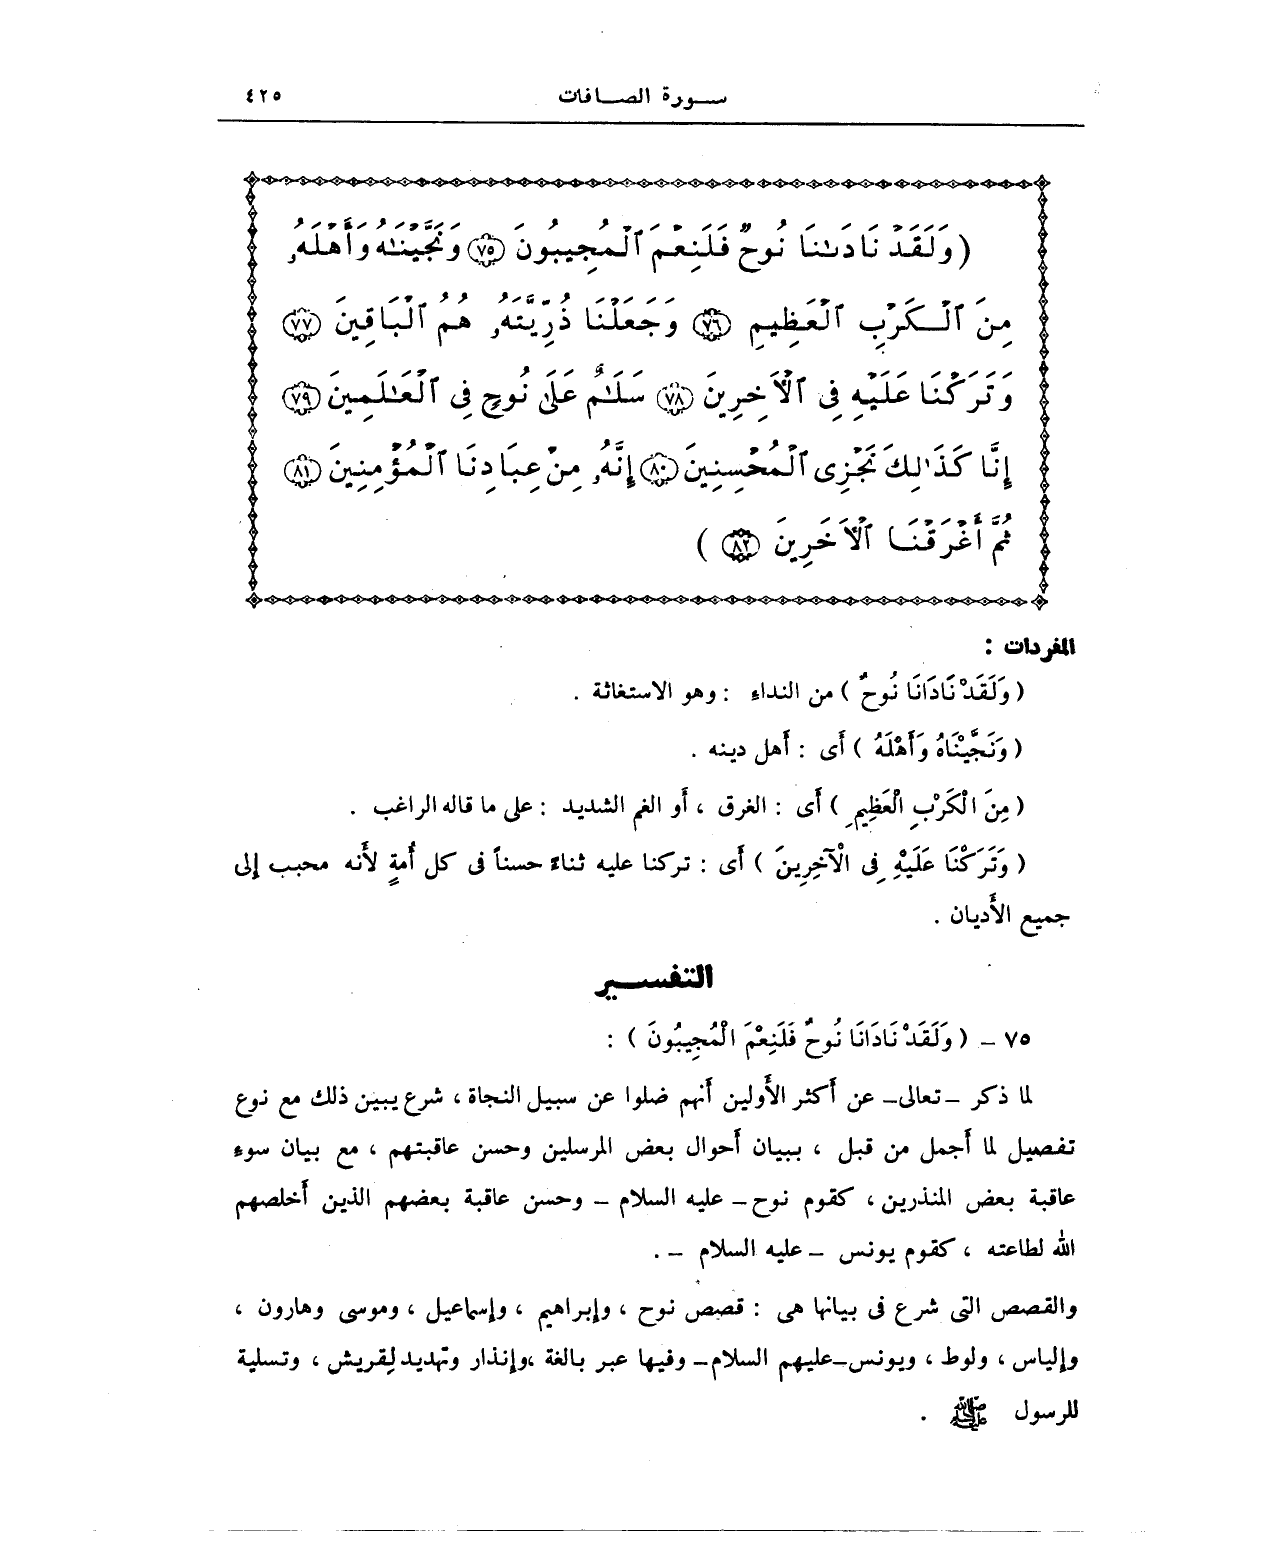 سورة الصافات ٤٢٥
( وَلَقَدْ نَادَىٰنَا نُوحٌ فَلَنِعْمَ ٱلْمُجِيبُونَ ٧٥ وَنَجَّيْنَٰهُ وَأَهْلَهُۥ
مِنَ ٱلْكَرْبِ ٱلْعَظِيمِ ٧٦ وَجَعَلْنَا ذُرِّيَّتَهُۥ هُمُ ٱلْبَاقِينَ ٧٧
وَتَرَكْنَا عَلَيْهِ فِى ٱلْآخِرِينَ ٧٨ سَلَٰمٌ عَلَىٰ نُوحٍ فِى ٱلْعَٰلَمِينَ ٧٩
إِنَّا كَذَٰلِكَ نَجْزِى ٱلْمُحْسِنِينَ ٨٠ إِنَّهُۥ مِنْ عِبَادِنَا ٱلْمُؤْمِنِينَ ٨١
ثُمَّ أَغْرَقْنَا ٱلْآخَرِينَ ٨٢ )
المفردات :
( وَلَقَدْ نَادَانَا نُوحٌ ) من النداء : وهو الاستغاثة .
( وَنَجَّيْنَاهُ وَأَهْلَهُ ) أَى : أَهل دينه .
( مِنَ الْكَرْبِ الْعَظِيمِ ) أَى : الغرق ، أَو الغم الشديد : على ما قاله الراغب .
( وَتَرَكْنَا عَلَيْهِ فِى الْآخِرِينَ ) أَى : تركنا عليه ثناءً حسناً فى كل أُمةٍ لأَنه محبب إلى
جميع الأَديان .
التفسير
٧٥ – ( وَلَقَدْ نَادَانَا نُوحٌ فَلَنِعْمَ الْمُجِيبُونَ ) :
لما ذكر – تعالى – عن أَكثر الأَولين أَنهم ضلوا عن سبيل النجاة ، شرع يبين ذلك مع نوع
تفصيل لما أَجمل من قبل ، ببيان أَحوال بعض المرسلين وحسن عاقبتهم ، مع بيان سوء
عاقبة بعض المنذرين ، كقوم نوح – عليه السلام – وحسن عاقبة بعضهم الذين أَخلصهم
الله لطاعته ، كقوم يونس – عليه السلام – .
والقصص التى شرع فى بيانها هى : قصص نوح ، وإبراهيم ، وإسماعيل ، وموسى وهارون ،
وإلياس ، ولوط ، ويونس – عليهم السلام – وفيها عبر بالغة ، وإنذار وتهديد لِقريش ، وتسلية
للرسول ﷺ .